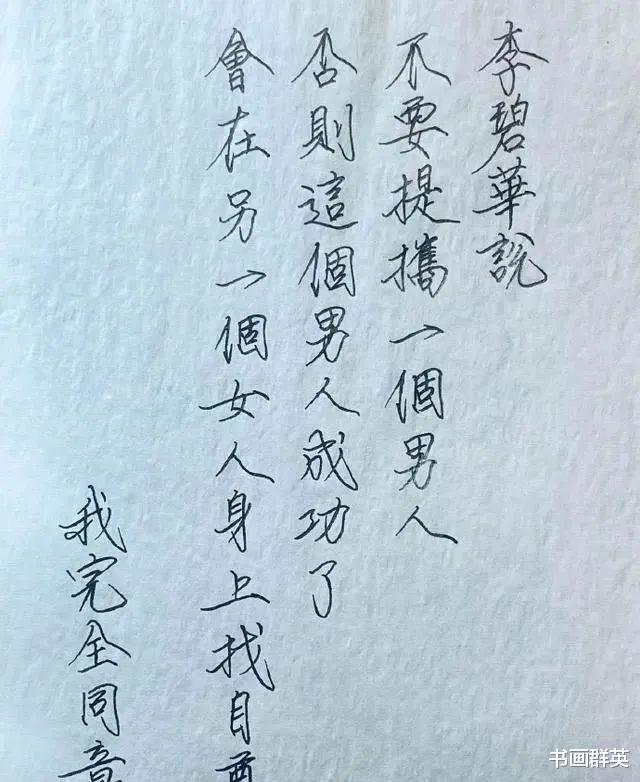 李碧華說
不要提攜一個男人
否則這個男人成功了
會在另一個女人身上找自尊
我完全同意
书画群英